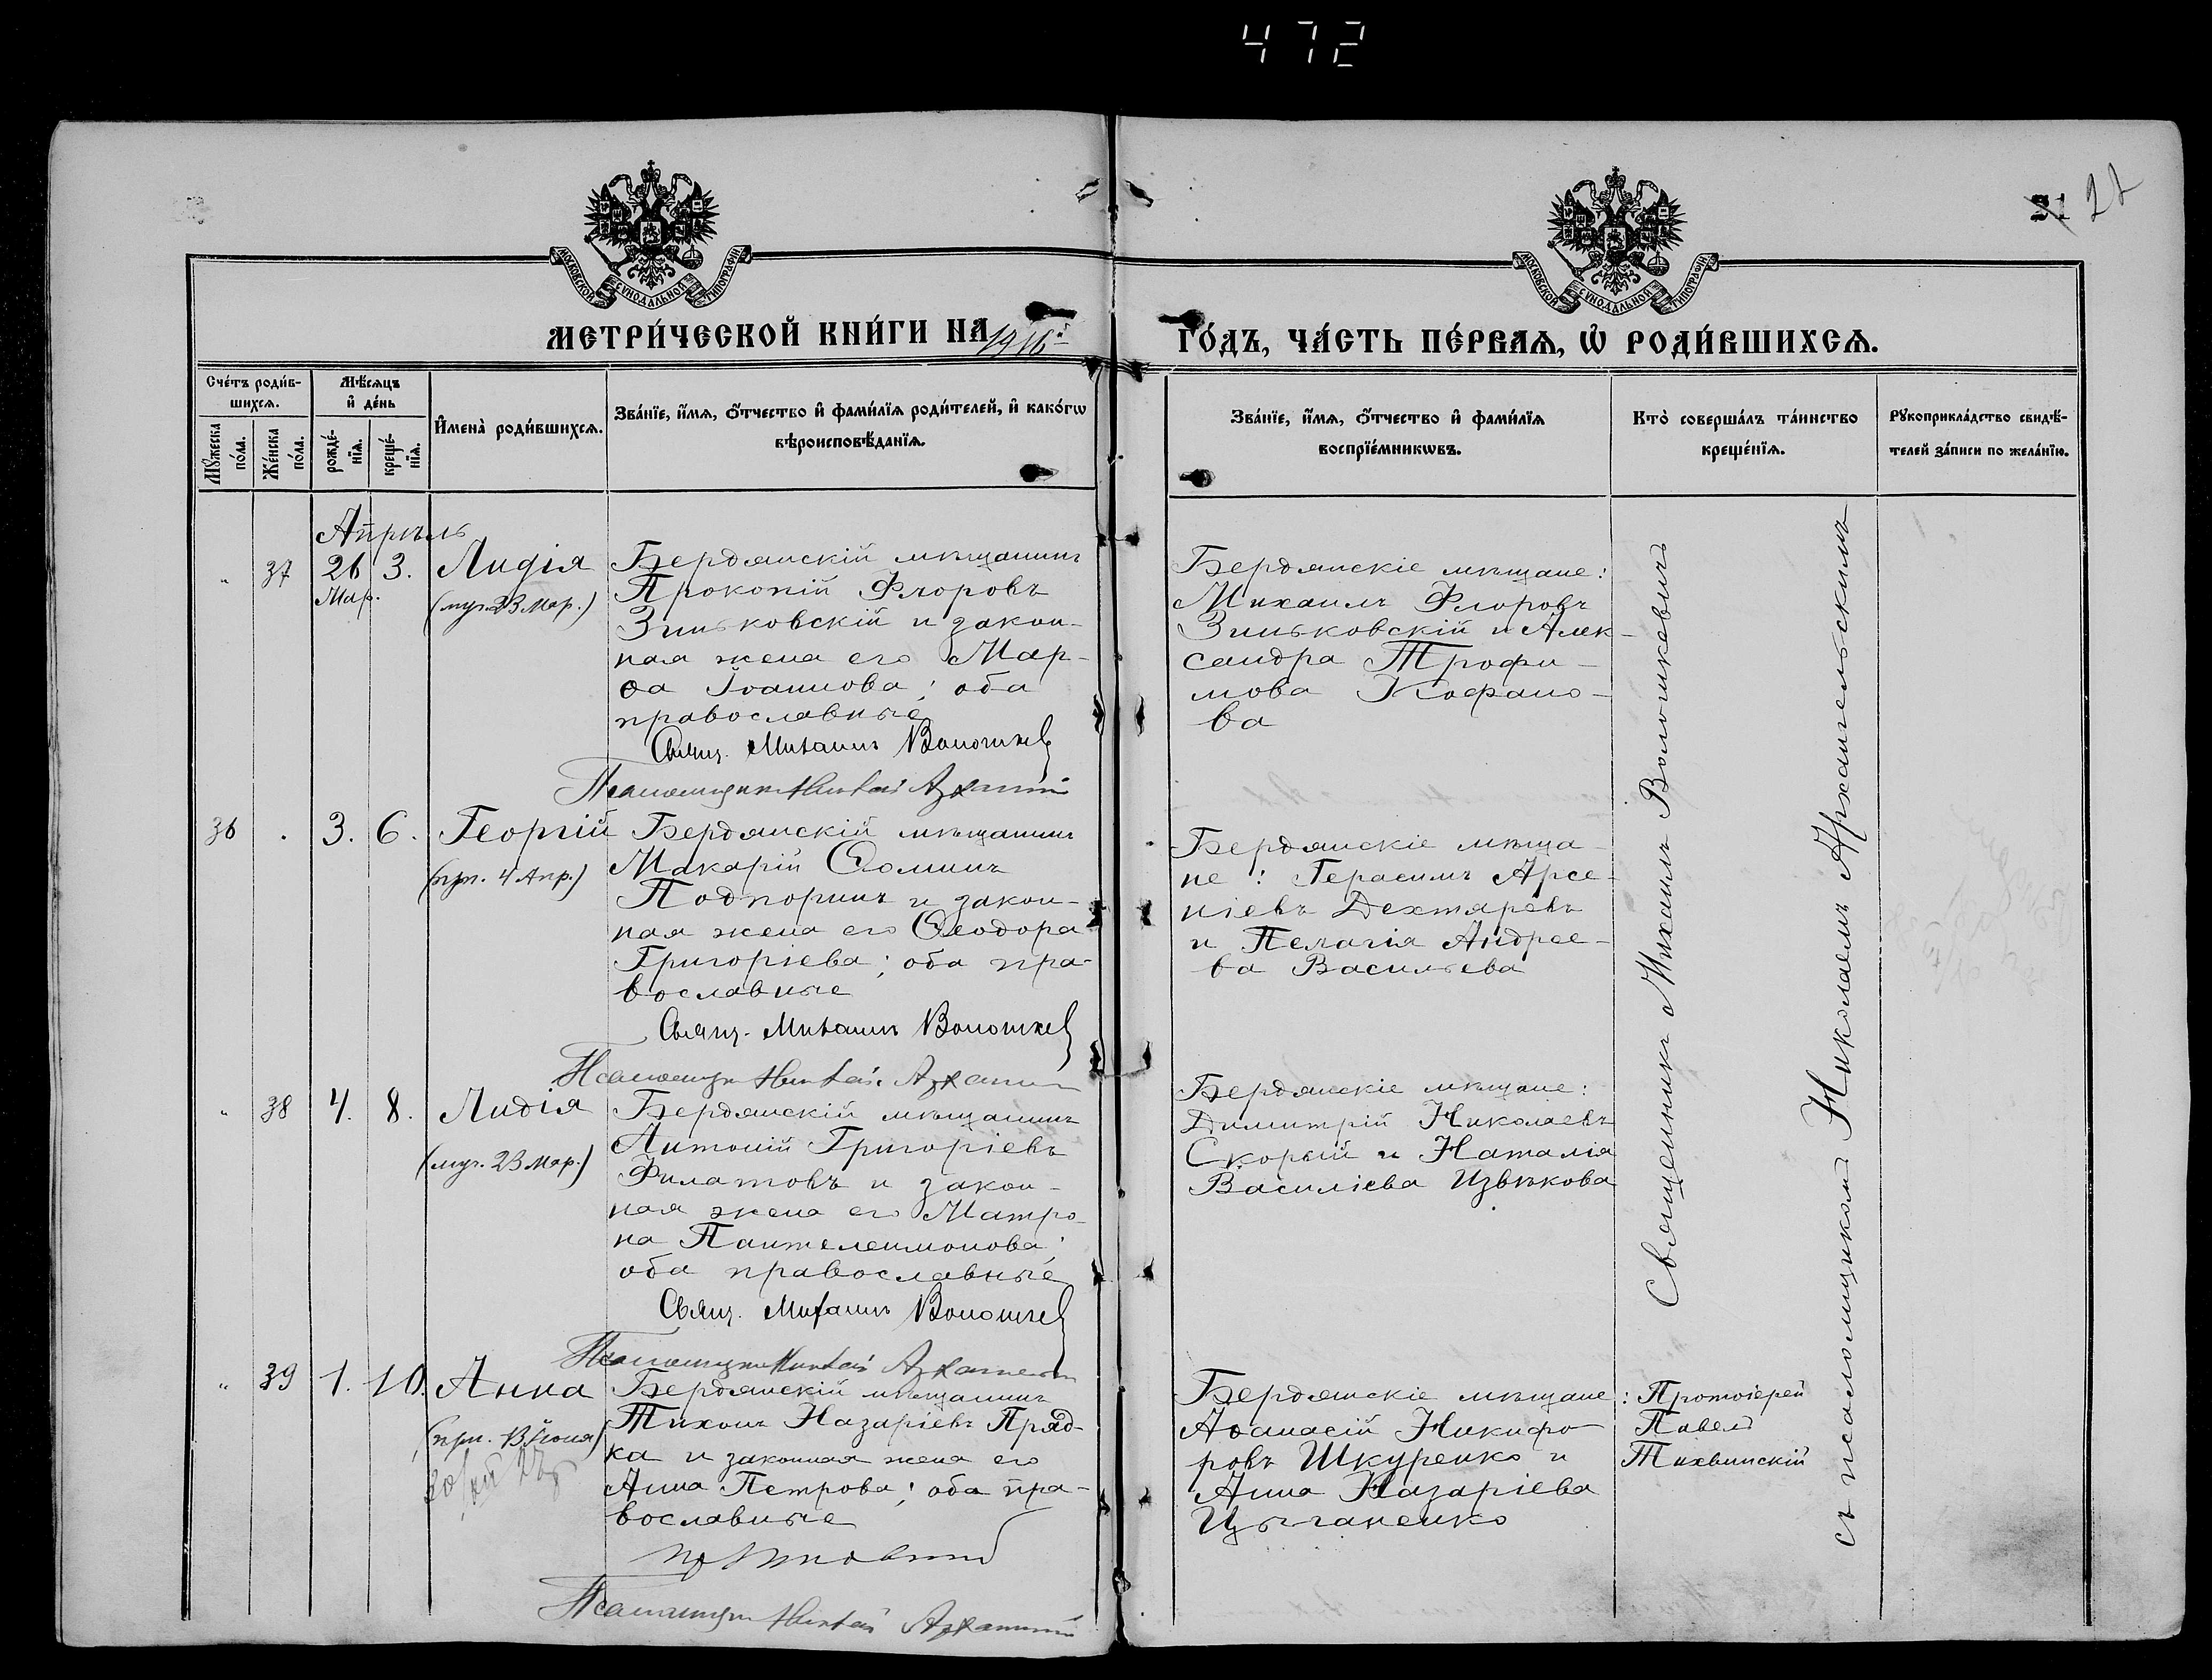 472
27
МОСКОВСКОЙ СѴНОДАЛЬНОЙ ТИПОГРАФІИ
МОСКОВСКОЙ СѴНОДАЛЬНОЙ ТИПОГРАФІИ
МЕТРИ́ЧЕСКОЙ КНИ́ГИ НА 1916й ГО́ДЪ, ЧА́СТЬ ПЕ́РВАѦ, Ѡ҆ РОДИ́ВШИХСѦ.
Сче́тъ роди́в-
шихсѧ.
Мꙋ́жеска по́ла.
Же́нска по́ла.
Мѣ́сѧцъ
и҆ де́нь
рожде́-
нїѧ.
креще́-
нїѧ.
И҆мена̀ роди́вшихсѧ.
Зва́нїе, и҆́мѧ, ѻ҆́тчество и҆ фами́лїѧ роди́телей, и҆ како́гѡ
вѣроисповѣ́данїѧ.
Зва́нїе, и҆́мѧ, ѻ҆́тчество и҆ фами́лїѧ
воспрїе́мникѡвъ.
Кто̀ соверша́лъ та́инство
креще́нїѧ.
Рꙋкоприкла́дство свидѣ́-
телей за́писи по жела́нїю.
Апрѣль
" 37 26 Мар. 3. Лидія
(муч. 23 Мар.)
Бердянскій мѣщанинъ
Прокопій Флоровъ
Зиньковскій и закон-
ная жена его Мар-
ѳа Іоаннова; оба
православные
Свящ. Михаилъ Волошкев
Псаломщикъ Николай Архангельскій
Бердянскіе мѣщане:
Михаилъ Флоровъ
Зиньковскій и Алек-
сандра Трофи-
мова Кофано-
ва
36 . 3. 6. Георгій
(прп. 4 Апр.)
Бердянскій мѣщанинъ
Макарій Ѳоминъ
Подпоринъ и закон-
ная жена его Ѳеодора
Григоріева; оба пра-
вославные
Свящ. Михаилъ Волошкев
Псаломщикъ Николай Архангельскій
Бердянскіе мѣща-
не: Герасимъ Арсе-
ніевъ Дехтяревъ
и Пелагія Андрее-
ва Васильева
" 38 4. 8. Лидія
(муч. 23 Мар.)
Бердянскій мѣщанинъ
Антоній Григоріевъ
Филатовъ и закон-
ная жена его Матро-
на Пантелеимонова;
оба православные
Свящ. Михаилъ Волошкев
Псаломщикъ Николай Архангельскій
Бердянскіе мѣщане:
Димитрій Николаевъ
Скорый и Наталія
Василіева Извѣкова
" 39 1. 10. Анна
(прп. 13 Іюня)
Бердянскій мѣщанинъ
Тихонъ Назаріевъ Пряд-
ка и законная жена его
Анна Петрова; оба пра-
вославные
Псаломщикъ Николай Архангельскій
Бердянскіе мѣщане:
Аѳанасій Никифо-
ровъ Шкуренко и
Анна Назаріева
Цыганенко
Протоіерей
Павелъ
Тихвинскій
Священникъ Михаилъ Волошкевичъ
съ псаломщикомъ Николаемъ Архангельскимъ